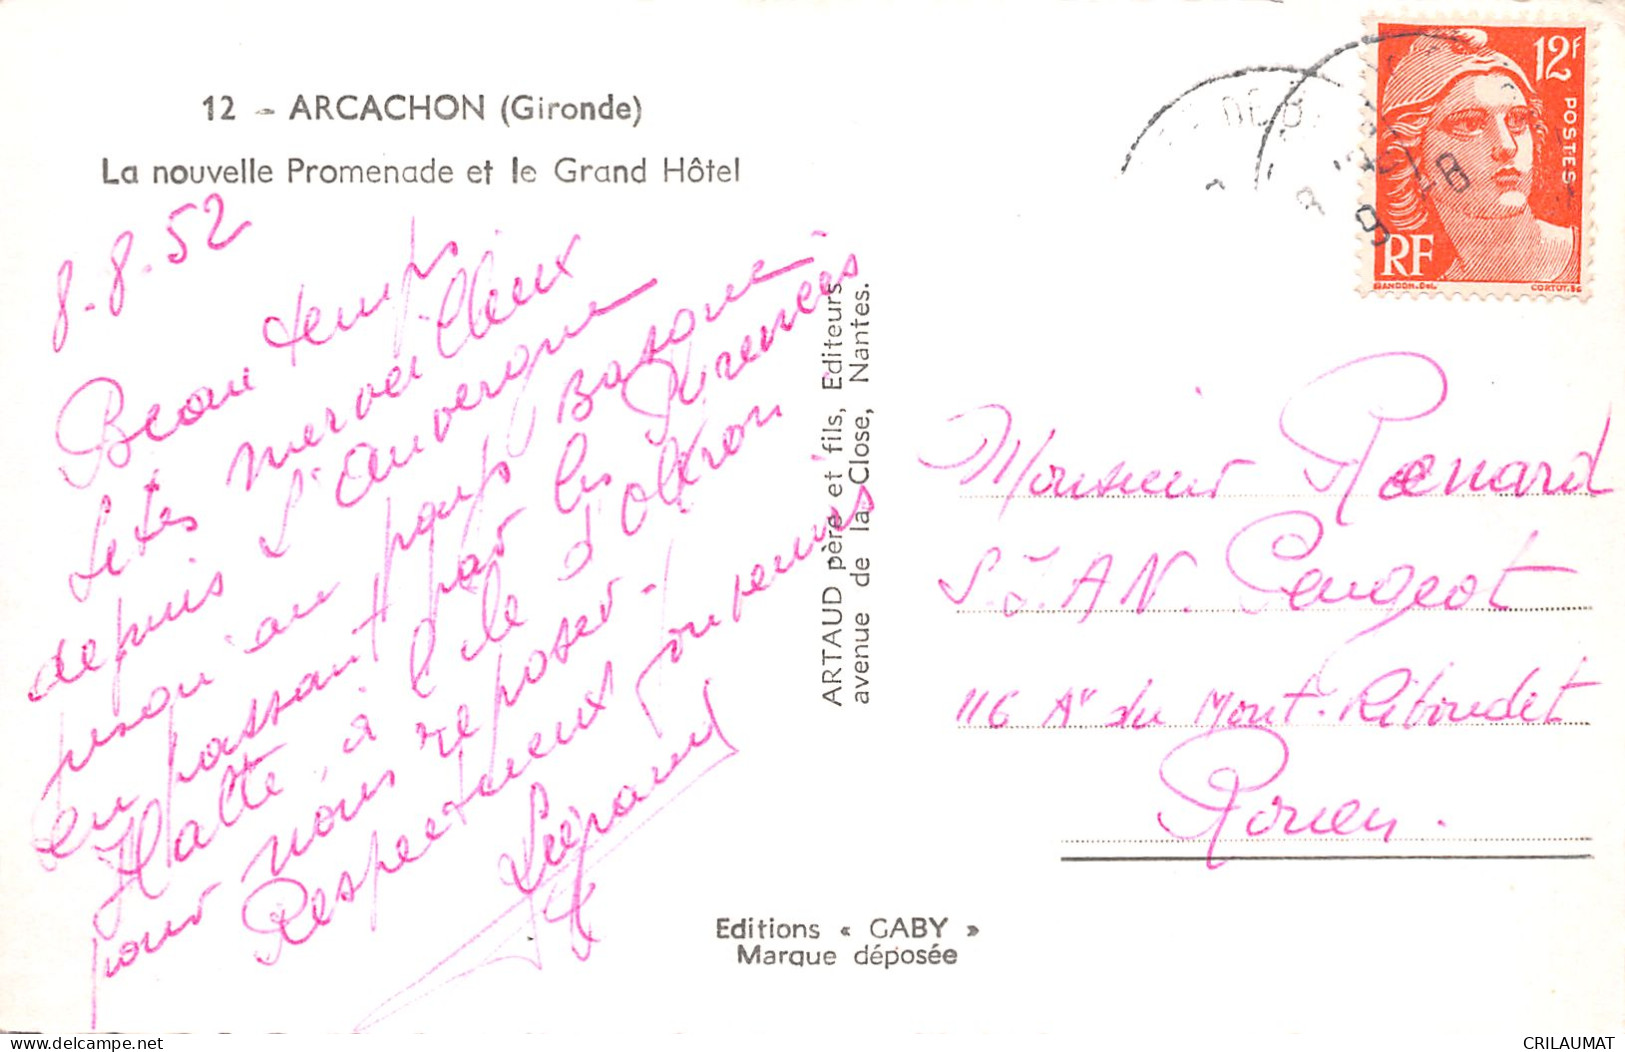 12 - ARCACHON (Gironde)
La nouvelle Promenade et le Grand Hôtel
8.8.52
Beau temps
Sites merveilleux
depuis l'Auvergne
jusqu'au pays Basque
en passant par les Pyrenées
Halte à l'ile d'Oléron
pour nous reposer.
Respectueux souvenirs
ARTAUD père et fils, Editeurs
avenue de la Close, Nantes.
Editions « GABY »
Marque déposée
12F
POSTES
RF
GANDON.DEL.
CORTOT.SC
Monsieur Renard
S.I.A.N. Peugeot
116 Ar du Mont-Riboudet
Rouen.
delcampe.net
CRILAUMAT